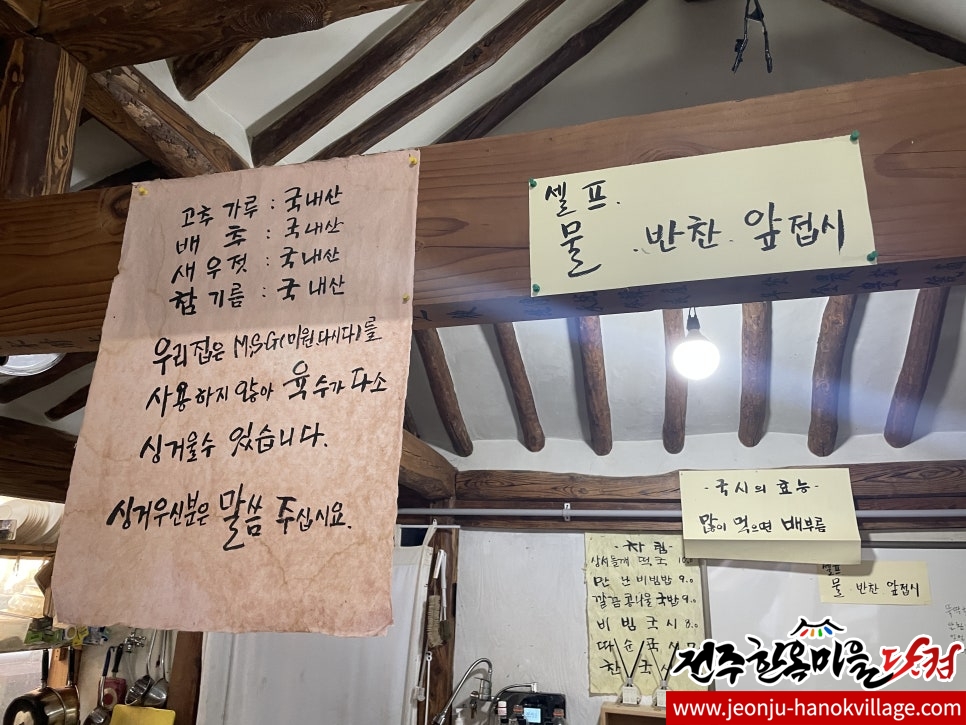 고추 가루 : 국내산
배 추 : 국내산
새우젓 : 국내산
참기름 : 국내산
우리집은 M.S.G(미원.다시다)를
사용하지 않아 육수가 다소
싱거울수 있습니다.
싱거우신분은 말씀 주십시요.
셀프.
물 . 반찬 . 앞접시
- 국시의 효능 -
많이 먹으면 배부름
셀프
물 반찬 앞접시
- 차림 -
만난비빔밥 9.0
깔끔콩나물국밥 9.0
비빔국시 8.0
전주한옥마을닷컴
www.jeonju-hanokvillage.com